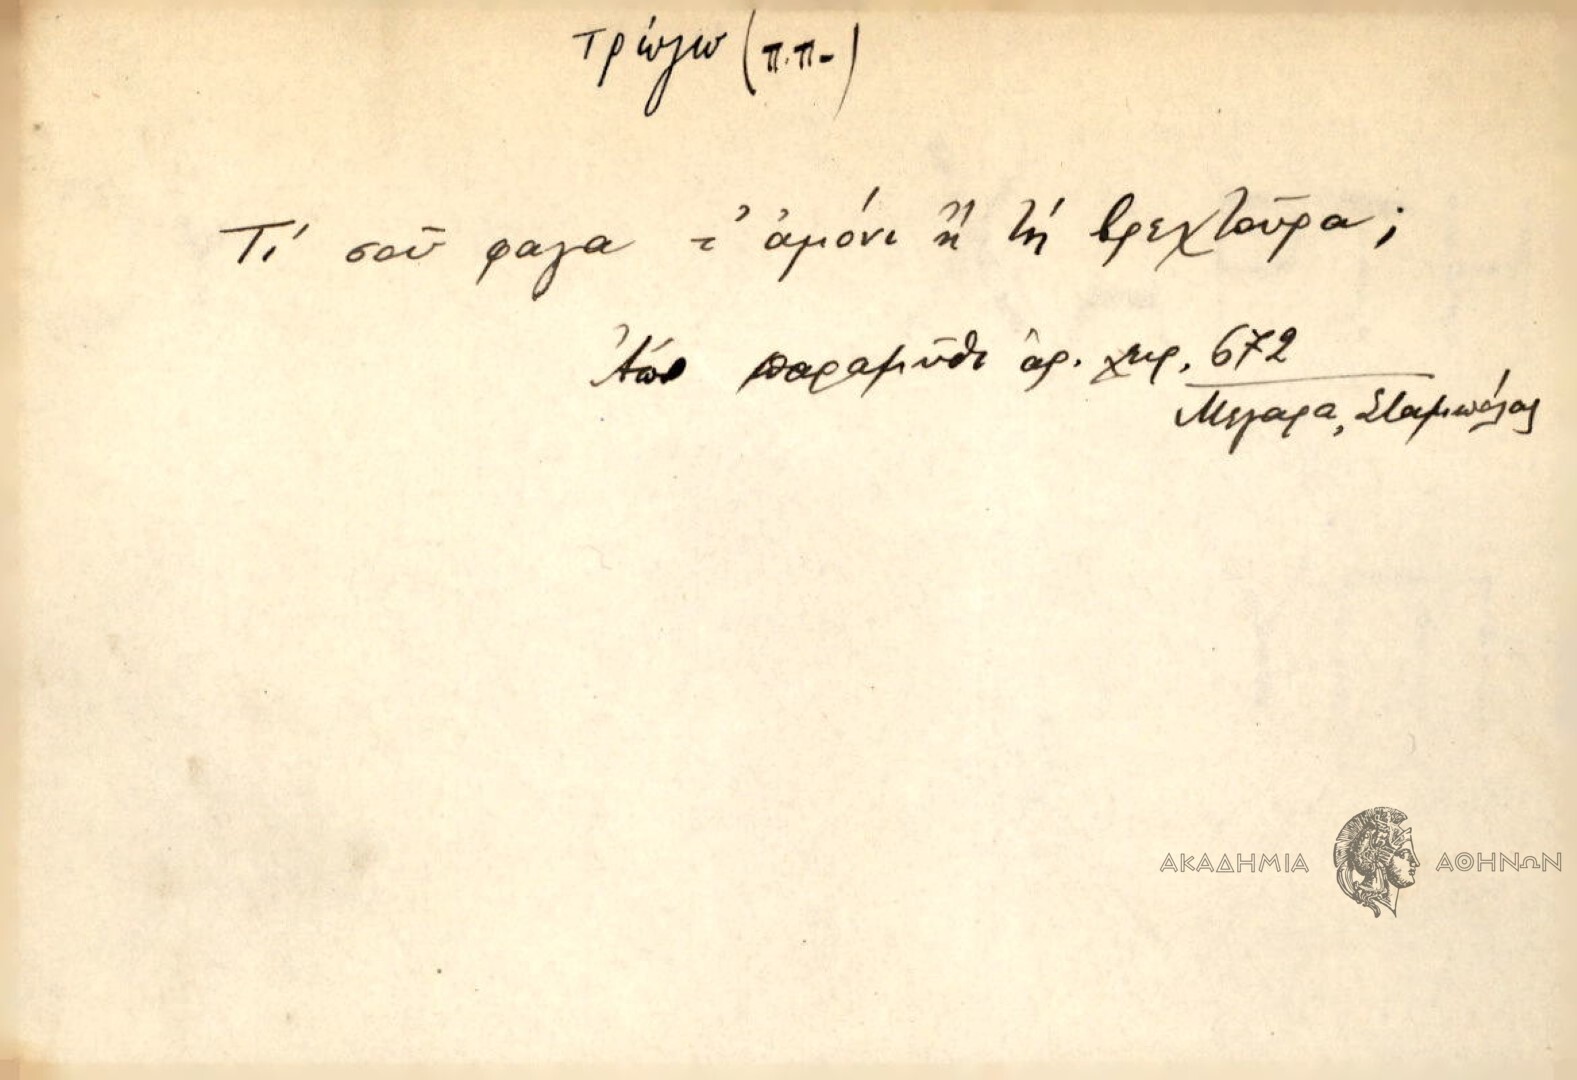 τρώγω (π.π-)
Τί σοῦ φαγα τ' ἀμόνι ἢ τή βρεχτοῦρα;
Ἀπὸ παραμῦθι ἀρ. χειρ. 672
Μεγαρα, Σταμπόλας
ΑΚΑΔΗΜΙΑ ΑΘΗΝΩΝ